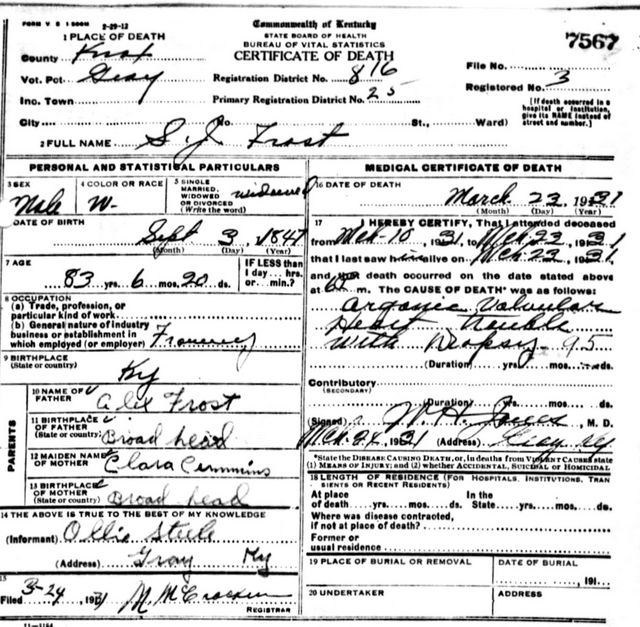 FORM V S 1 500M 2-29-12
Commonwealth of Kentucky
STATE BOARD OF HEALTH
BUREAU OF VITAL STATISTICS
CERTIFICATE OF DEATH
7567
1 PLACE OF DEATH
County Knox
Vot. Pct Gray
Inc. Town
City No. St., Ward)
Registration District No. 816
Primary Registration District No. 25
File No.
Registered No. 3
[If death occurred in a
hospital or institution,
give its NAME instead of
street and number.]
2 FULL NAME S. J. Frost
PERSONAL AND STATISTICAL PARTICULARS
3 SEX Male
4 COLOR OR RACE W-
5 SINGLE
MARRIED,
WIDOWED
OR DIVORCED
(Write the word)
widowed
DATE OF BIRTH
Sept 3, 1847
(Month) (Day) (Year)
7 AGE
83 yrs. 6 mos. 20 ds.
IF LESS than
1 day... hrs.
or...... m.
8 OCCUPATION
(a) Trade, profession, or
particular kind of work
(b) General nature of industry
business or establishment in
which employed (or employer)
9 BIRTHPLACE
(State or country)
Ky
PARENTS
10 NAME OF
FATHER
Alex Frost
11 BIRTHPLACE
OF FATHER
(State or country)
Broad head
12 MAIDEN NAME
OF MOTHER
Clara Cummins
13 BIRTHPLACE
OF MOTHER
(State or country)
Broad head
14 THE ABOVE IS TRUE TO THE BEST OF MY KNOWLEDGE
(Informant) Ollie Steele
(Address) Gray Ky
15
Filed 3-24, 1931 M. McCracken
REGISTRAR
11-1184
MEDICAL CERTIFICATE OF DEATH
16 DATE OF DEATH
March 23 1931
(Month) (Day) (Year)
17 I HEREBY CERTIFY, That I attended deceased
from Mch-10, 1931, to Mch 22, 1931,
that I last saw him alive on Mch-22, 1931,
and that death occurred on the date stated above
at m. The CAUSE OF DEATH* was as follows:
Organic Valvular
Heart Trouble
With Dropsy 95
(Duration) yrs. mos. ds.
Contributory
(SECONDARY)
(Duration) yrs. mos. ds.
(Signed) W. H. Jones, M. D.
1931 (Address) Gray Ky
*State the DISEASE CAUSING DEATH, or, in deaths from VIOLENT CAUSES state
(1) MEANS OF INJURY; and (2) whether ACCIDENTAL, SUICIDAL or HOMICIDAL
18 LENGTH OF RESIDENCE (FOR HOSPITALS, INSTITUTIONS, TRAN
SIENTS OR RECENT RESIDENTS)
At place
of death yrs. mos. ds.
In the
State yrs. mos. ds.
Where was disease contracted,
if not at place of death?
Former or
usual residence
19 PLACE OF BURIAL OR REMOVAL
DATE OF BURIAL
, 191
20 UNDERTAKER
ADDRESS